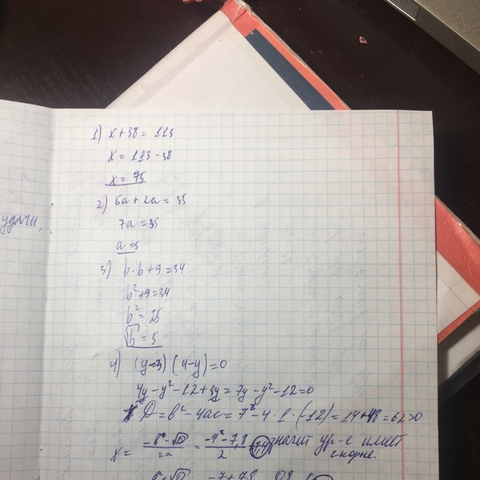 удачи,
1) x + 38 = 113
x = 113 - 38
x = 75
2) 5a + 2a = 35
7a = 35
a = 5
3) b · b + 9 = 34
b² + 9 = 34
b² = 25
b = 5
4) (y-3)(4-y)=0
4y - y² - 12 + 3y = 7y - y² - 12 = 0
D = b² - 4ac = 7² - 4 · 1 · (-12) = 14 + 48 = 62 > 0
значит ур-е имеет
2 корня.
x = -b - √D / 2a = -7 - 7,8 / 2
-7 + 7,8